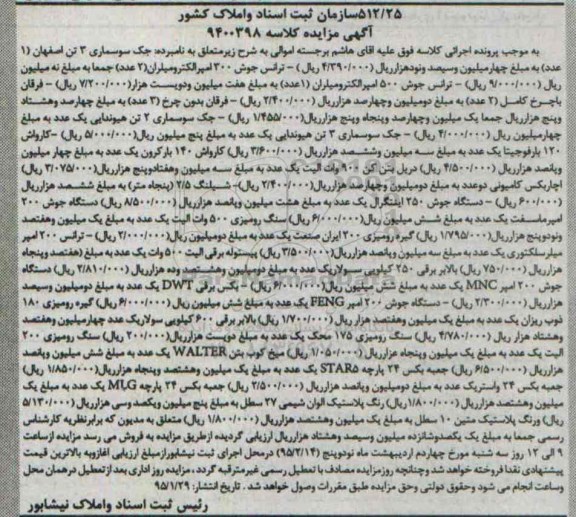 ۵۱۲/۲۵سازمان ثبت اسناد واملاک کشور
آگهی مزایده کلاسه ۹۴۰۰۳۹۸
به موجب پرونده اجرائی کلاسه فوق علیه اقای هاشم برجسته اموالی به شرح زیرمتعلق به نامبرده: جک سوسماری ۳ تن اصفهان (۱
عدد) به مبلغ چهارمیلیون وسیصد ونودهزارریال (۴/۳۹۰/۰۰۰ ریال ) – ترانس جوش ۳۰۰ امپرالکترومیلران(۲ عدد) جمعا به مبلغ نه میلیون
ریال (۹/۰۰۰/۰۰۰ ریال – ترانس جوش ۵۰۰ امپرالکترومیلران (۱عدد) به مبلغ هفت میلیون ودویست هزار(۷/۲۰۰/۰۰۰ ریال) – فرقان
باچرخ کامل (۲ عدد) به مبلغ دومیلیون وچهارصد هزارریال (۲/۴۰۰/۰۰۰ ریال) – فرقان بدون چرخ (۳ عدد) به مبلغ چهارصد وهشتاد
وپنج هزارریال جمعا یک میلیون وچهارصد وپنجاه وپنج هزارریال(۱/۴۵۵/۰۰۰ ریال) – جک سوسماری ۲ تن هیوندایی یک عدد به مبلغ
چهارمیلیون ریال (۴/۰۰۰/۰۰۰ ریال) – جک سوسماری ۳ تن هیوندایی یک عدد به مبلغ پنج میلیون ریال(۵/۰۰۰/۰۰۰ ریال) –کارواش
۱۲۰ بارفوجیتا یک عدد به مبلغ سه میلیون وششصد هزارریال (۳/۶۰۰/۰۰۰ ریال) کارواش ۱۴۰ بارکرون یک عدد به مبلغ چهار میلیون
وپانصد هزارریال (۴/۵۰۰/۰۰۰ ریال) دریل بتن کن ۹۰۰ وات الیت یک عدد به مبلغ سه میلیون وهفتادوپنج هزارریال (۳/۰۷۵/۰۰۰ریال)
اچاربکس کامیونی دوعدد به مبلغ دومیلیون وچهارصد هزارریال(۲/۴۰۰/۰۰۰ریال)– شیلنگ ۲/۵ (پنجاه متر) به مبلغ ششصد هزارریال
(۶۰۰/۰۰۰ ریال) – دستگاه جوش ۲۵۰ اینتگرال یک عدد به مبلغ هشت میلیون وپانصد هزارریال (۸/۵۰۰/۰۰۰ ریال) دستگاه جوش ۲۰۰
امپرماسفت یک عدد به مبلغ شش میلیون ریال(۶/۰۰۰/۰۰۰ ریال) سنگ رومیزی ۵۰۰ وات الیت یک عدد به مبلغ یک میلیون وهفتصد
ونودوپنج هزارریال (۱/۷۹۵/۰۰۰ ریال) گیره رومیزی ۲۰۰ ایران صنعت یک عدد به مبلغ دومیلیون ریال(۲/۰۰۰/۰۰۰ ریال) – ترانس ۲۰۰ امپر
میلرسلکتوری یک عدد به مبلغ سه میلیون وپانصد هزارریال(۳/۵۰۰/۰۰۰ ریال) پیستوله برقی الیت ۵۰۰ وات یک عدد به مبلغ (هفتصد وپنجاه
هزارریال (۷۵۰/۰۰۰ ریال) بالابر برقی ۲۵۰ کیلویی سولاریک عدد به مبلغ دومیلیون وهشتصد وده هزارریال (۲/۸۱۰/۰۰۰ ریال) دستگاه
جوش ۲۰۰ امپر MNC یک عدد به مبلغ شش میلیون ریال(۶/۰۰۰/۰۰۰ ریال) – بکس برقی DWT یک عدد به مبلغ دومیلیون وسیصد
هزارریال (۲/۳۰۰/۰۰۰ ریال) – دستگاه جوش ۲۰۰ امپر FENG یک عدد به مبلغ شش میلیون ریال(۶/۰۰۰/۰۰۰ ریال) گیره رومیزی ۱۸۰
ذوب ریزان یک عدد به مبلغ یک میلیون وهفتصد هزار ریال (۱/۷۰۰/۰۰۰ ریال) بالابر برقی ۶۰۰ کیلویی سولاریک عدد چهارمیلیون وهفتصد
وهشتاد هزار ریال (۴/۷۸۰/۰۰۰ ریال) سنگ رومیزی ۱۷۵ محک یک عدد به مبلغ دویست هزارریال(۲۰۰/۰۰۰ ریال) سنگ رومیزی ۲۰۰
الیت یک عدد به مبلغ یک میلیون وپنجاه هزارریال (۱/۰۵۰/۰۰۰ ریال) میخ کوب بتن WALTER یک عدد به مبلغ شش میلیون وپانصد
هزارریال (۶/۵۰۰/۰۰۰ ریال) جعبه بکس ۲۴ پارچه STAR۵ یک عدد به مبلغ یک میلیون وهشتصد وپنجاه هزارریال(۱/۸۵۰/۰۰۰ ریال)
جعبه بکس ۲۴ واستریک عدد به مبلغ دومیلیون وپانصد هزارریال (۲/۵۰۰/۰۰۰ ریال) جعبه بکس ۲۴ پارچه MUG یک عدد به مبلغ یک
میلیون وهشتصد هزارریال(۱/۸۰۰/۰۰۰ریال) رنگ پلاستیک الوان شیمی ۲۷ سطل به مبلغ پنج میلیون ویکصد وسی هزارریال (۵/۱۳۰/۰۰۰
ریال) ورنگ پلاستیک متین ۱۰ سطل به مبلغ یک میلیون وهشتصد هزارریال (۱/۸۰۰/۰۰۰ ریال) متعلق به مدیون که برابرنظریه کارشناس
رسمی جمعا به مبلغ یک یکصدوشانزده میلیون وسیصد وهشتاد هزارریال ارزیابی گردیده ازطریق مزایده به فروش می رسد مزایده ازساعت
۹ الی ۱۲ روز سه شنبه مورخ چهاردم اردیبهشت ماه نودوپنج (۹۵/۲/۱۴) درمحل اجرای ثبت نیشابورازمبلغ ارزیابی اغازوبه بالاترین قیمت
پیشنهادی نقدا فروخته خواهد شد وچنانچه روزمزایده مصادف با تعطیل رسمی غیرمترقبه گردد ، مزایده روز اداری بعد ازتعطیل درهمان محل
وساعت انجام می شود وحقوق دولتی وحق مزایده طبق مقررات وصول خواهد شد . تاریخ انتشار: ۹۵/۱/۲۹
رئیس ثبت اسناد واملاک نیشابور